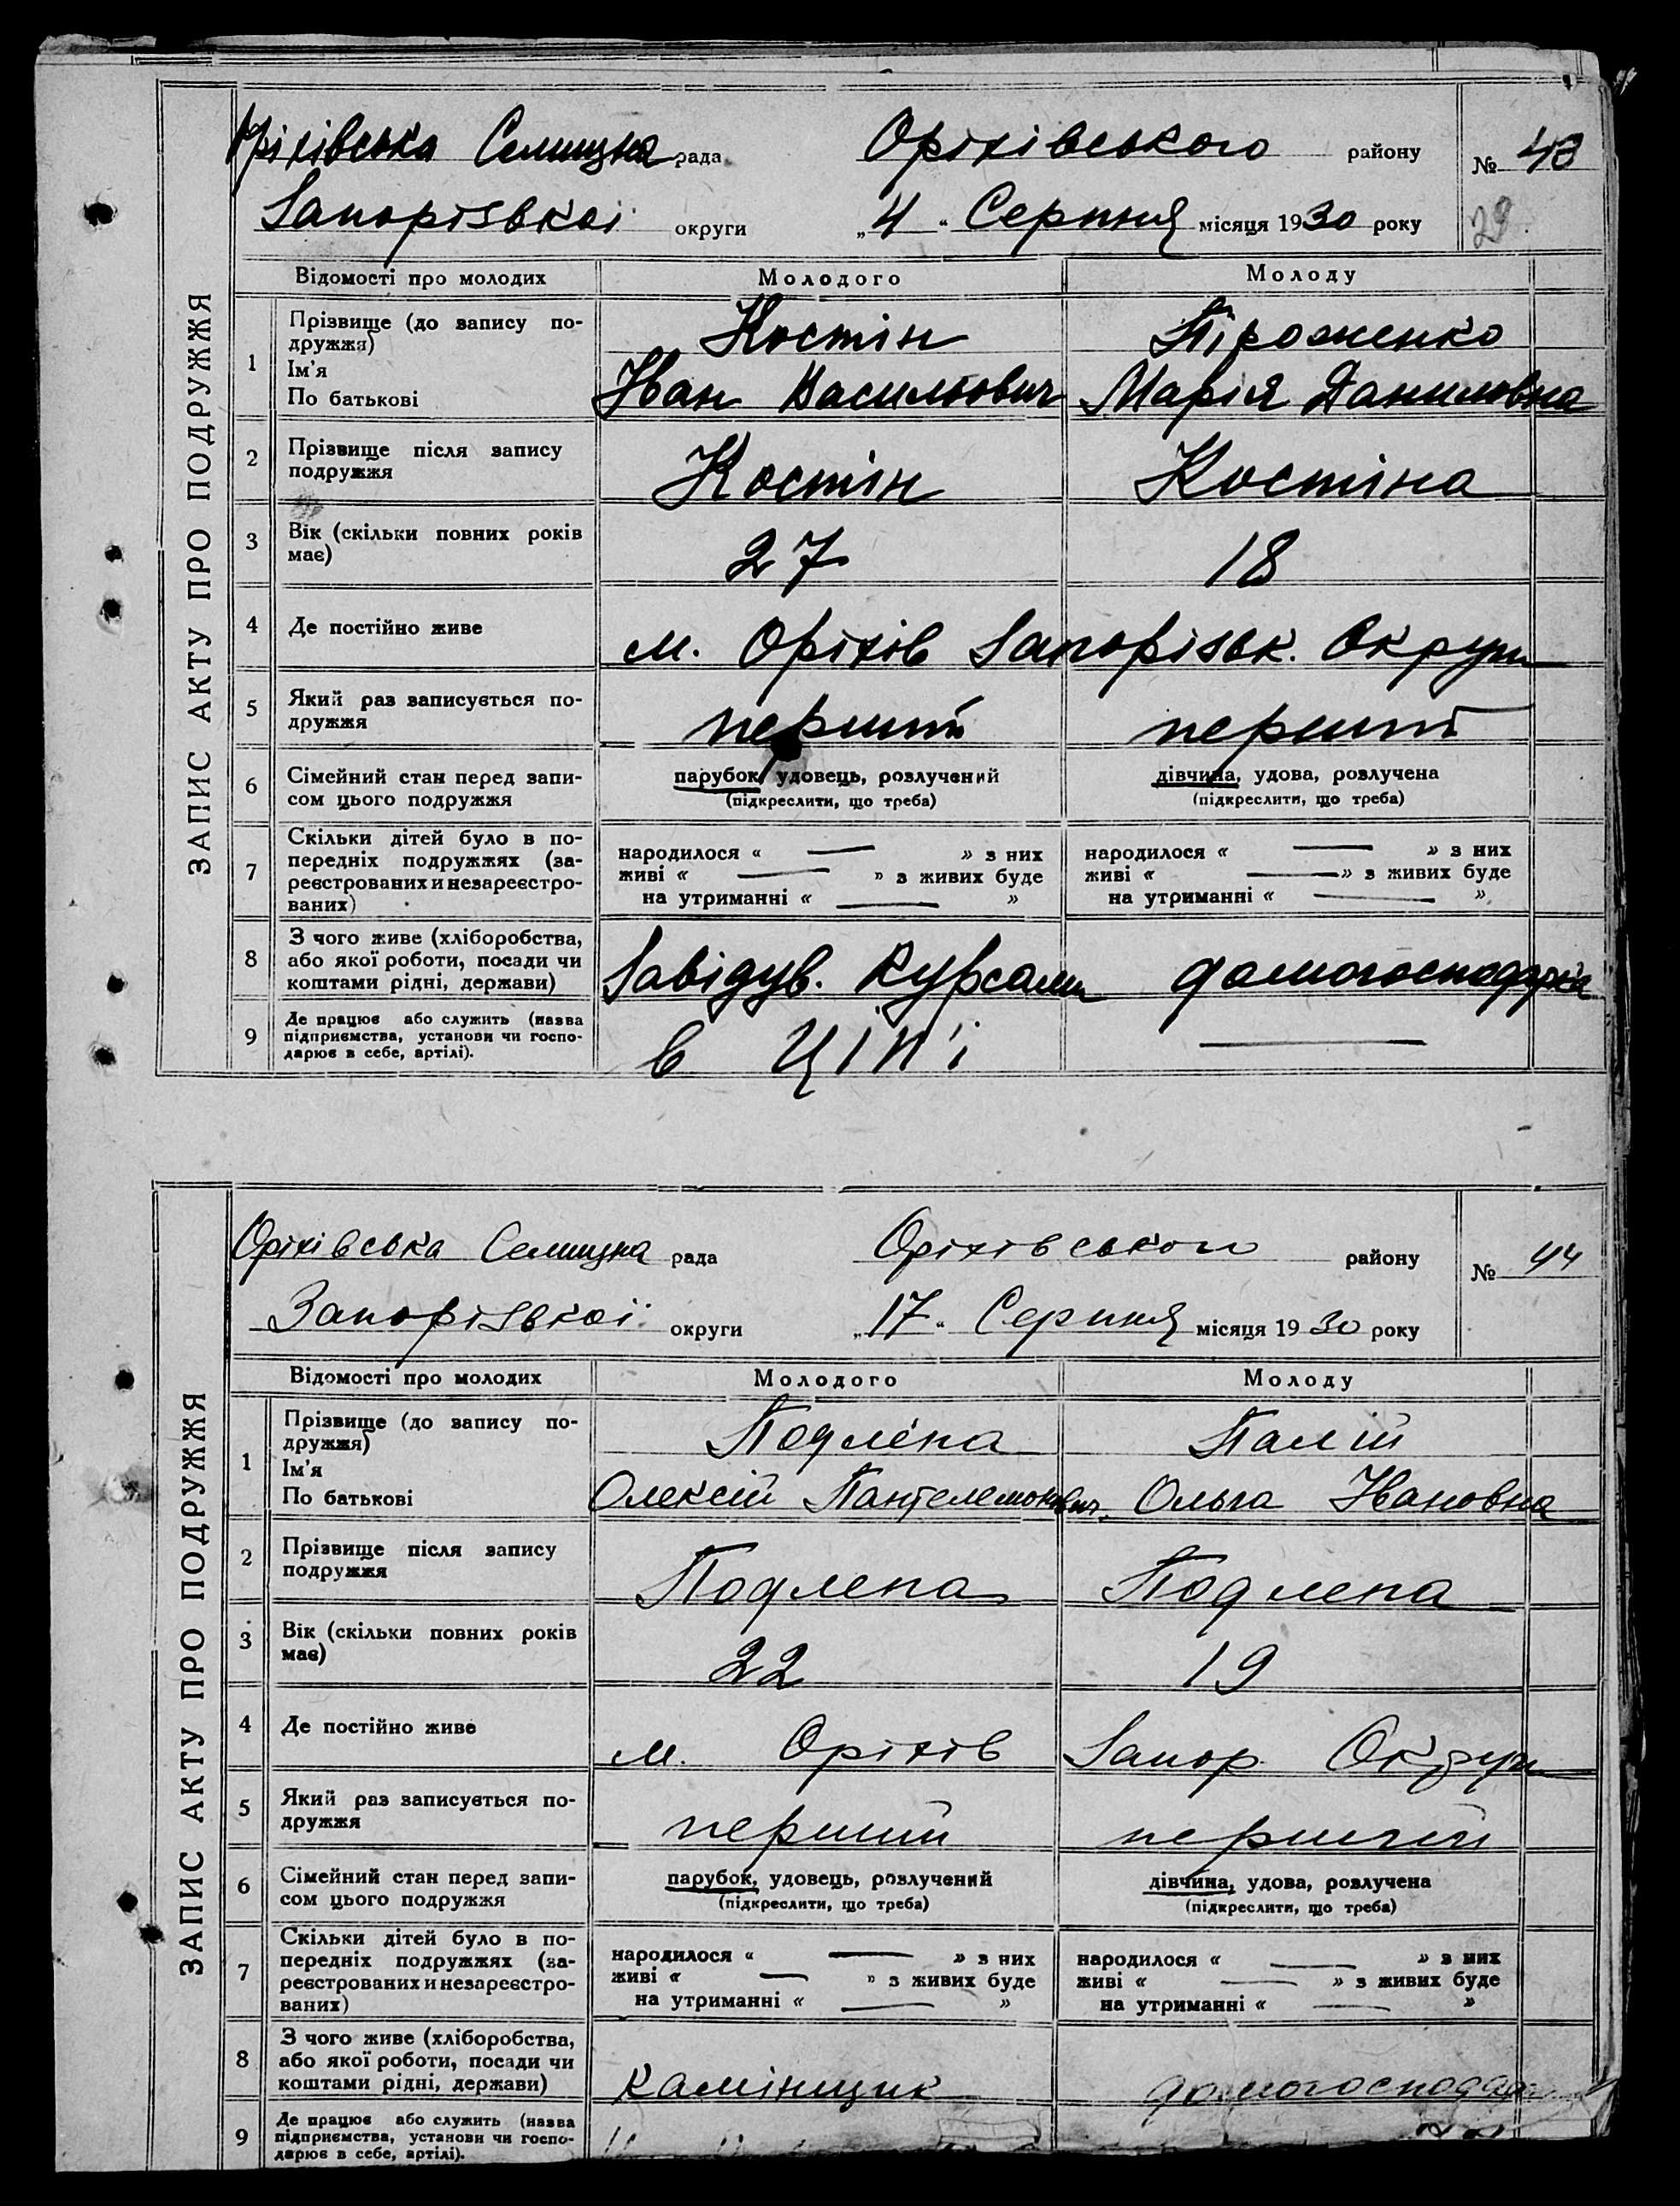 ЗАПИС АКТУ ПРО ПОДРУЖЖЯ
Оріхівська Селищна рада Оріхівського району № 43
Запорізької округи „4“ Серпня місяця 1930 року 29
Відомості про молодих Молодого Молоду
1 Прізвище (до запису по- Костін Пироженко
дружжя)
Ім'я Іван Васильович Марія Даниловна
По батькові
2 Прізвище після запису Костін Костіна
подружжя
3 Вік (скільки повних років 27 18
має)
4 Де постійно живе м. Оріхів Запорізьк. Округи
5 Який раз записується по- перший перший
дружжя
6 Сімейний стан перед запи- парубок, удовець, розлучений дівчина, удова, розлучена
сом цього подружжя (підкреслити, що треба) (підкреслити, що треба)
7 Скільки дітей було в по- народилося « — » з них народилося « — » з них
передніх подружжях (за- живі « — » з живих буде живі « — » з живих буде
реєстрованих и незареєстро- на утриманні « — » на утриманні « — »
ваних)
8 З чого живе (хліборобства, Завідув. Курсами домогосподарка
або якої роботи, посади чи
коштами рідні, держави)
9 Де працює або служить (назва в ЦІН'і —
підприємства, установи чи госпо-
дарює в себе, артілі).
ЗАПИС АКТУ ПРО ПОДРУЖЖЯ
Оріхівська Селищна рада Оріхівського району № 44
Запорізької округи „17“ Серпня місяця 1930 року
Відомості про молодих Молодого Молоду
1 Прізвище (до запису по- Подлепа Палій
дружжя)
Ім'я Олексій Пантелемонович Ольга Івановна
По батькові
2 Прізвище після запису Подлепа Подлепа
подружжя
3 Вік (скільки повних років 22 19
має)
4 Де постійно живе м. Оріхів Запор. Округи
5 Який раз записується по- перший перший
дружжя
6 Сімейний стан перед запи- парубок, удовець, розлучений дівчина, удова, розлучена
сом цього подружжя (підкреслити, що треба) (підкреслити, що треба)
7 Скільки дітей було в по- народилося « — » з них народилося « — » з них
передніх подружжях (за- живі « — » з живих буде живі « — » з живих буде
реєстрованих и незареєстро- на утриманні « — » на утриманні « — »
ваних)
8 З чого живе (хліборобства, Камінщик
або якої роботи, посади чи
коштами рідні, держави)
9 Де працює або служить (назва
підприємства, установи чи госпо-
дарює в себе, артілі).